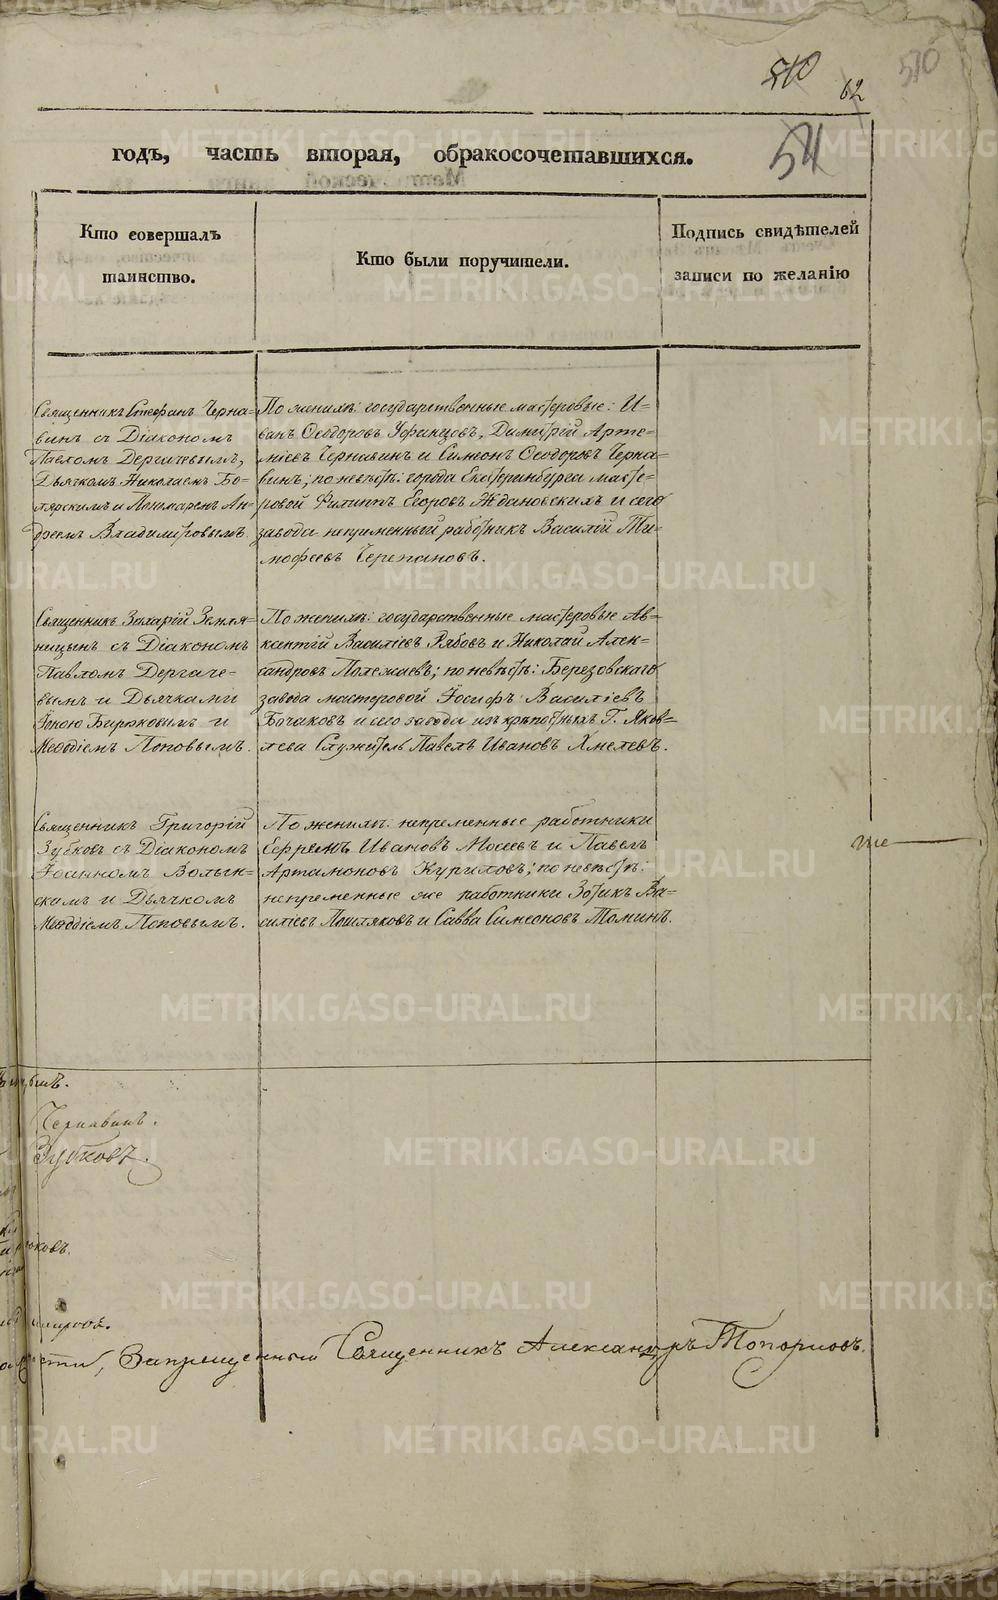 510
62
510
54
годъ, часть вторая, обракосочетавшихся.
Кто совершалъ
таинство.
Кто были поручители.
Подпись свидѣтелей
записи по желанію
Священникъ Стефанъ Черна-
винъ съ Діакономъ
Павломъ Дергачевымъ,
Дьячкомъ Николаемъ Бо-
лярскимъ и Пономаремъ Ан-
дреемъ Владимiровымъ.
По женихѣ: государственные мастеровые: И-
ванъ Ѳеодоровъ Уфинцовъ, Димитрій Арте-
міевъ Чернавинъ и Симеонъ Ѳеодоровъ Черна-
винъ; по невѣстѣ: города Екатеринбурга масте-
ровой Филиппъ Егоровъ Ждановскихъ и сего
завода непременный работникъ Василій Ти-
мофеевъ Черепановъ.
Священникъ Захарій Земля-
ницынъ съ Діакономъ
Павломъ Дергаче-
вымъ и Дьячками
Іоною Бирюковымъ и
Меѳодіемъ Поповымъ.
По женихѣ: государственные мастеровые Ав-
ксентій Василіевъ Рябовъ и Николай Алек-
сандровъ Полежаевъ; по невѣстѣ: Березовскаго
завода мастеровой Іосифъ Василіевъ
Бочаковъ и сего завода изъ крѣпостныхъ Г. Яков-
лева Служитель Павелъ Ивановъ Хмелевъ.
Священникъ Григорій
Зубковъ съ Діакономъ
Іоанномъ Волын-
скимъ и Дьячкомъ
Меѳодіемъ Поповымъ.
По женихѣ: непременные работники
Ефремъ Ивановъ Мосеевъ и Павелъ
Артамоновъ Куриловъ; по невѣстѣ:
непременные же работники Зотикъ Ва-
силіевъ Пошляковъ и Савва Симеоновъ Томинъ.
же
Чернавинъ.
Зубковъ.
Запрещенный Священникъ Александръ Топорковъ.
METRIKI.GASO-URAL.RU